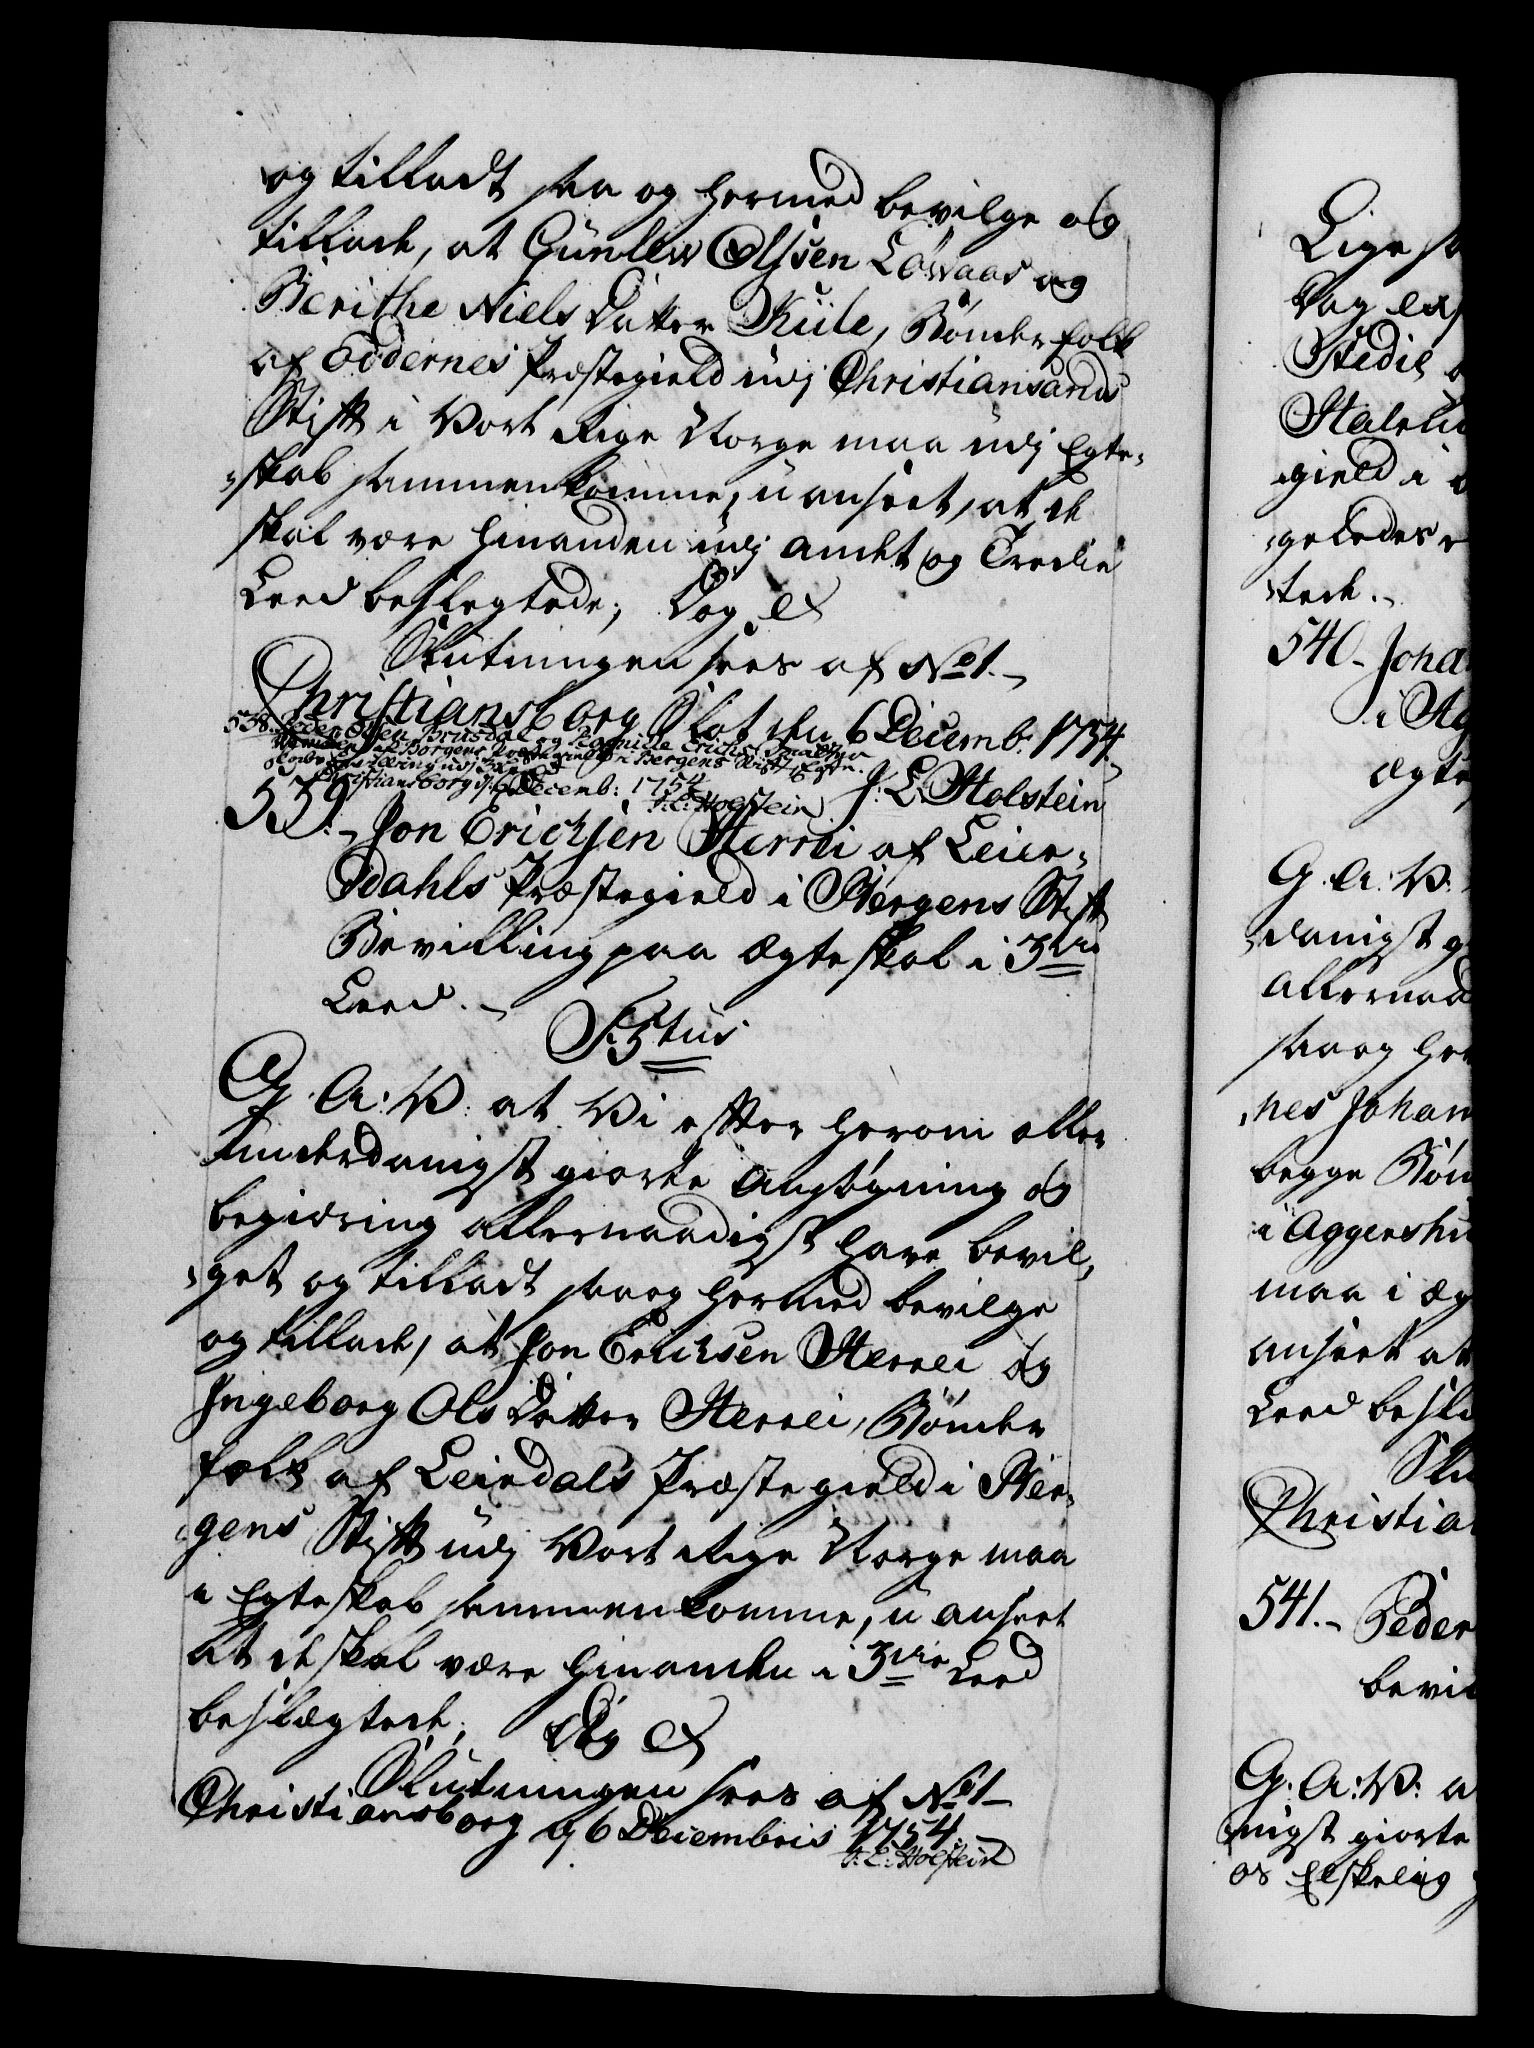 og tilladt saa og hermed bevilge og
tillade, at Gunlew Olssen Løvaas og
Berithe Niels Datter Kule, Bønderfolk
af Oddernes Præstegield udj Christiansands
Stift i Vort Rige Norge maa udj Egte-
skab sammenkomme, uanseet, at de
skal være hinanden udj andet og Tredie
Leed beslegtede; Dog &
Slutningen sees af No 1.
Christiansborg Slot den 6 Decemb: 1754.
538. Peder Olsen Brusdal og Pernille Erichsd.
af Borgens Præstegield i Bergens Stift
Christiansborg d. 6 Decemb: 1754
J. L. Holstein
J. L. Holstein
539. Jon Erichsen Sterrei af Leier-
dahls Præstegield i Bergens Stift
Bevilling paa Ægteskab i 3die
Leed.
F: 5tus
G. A: V: at Vi efter herom aller
underdanigst giorte Ansøgning og
begiæring allernaadigst have bevil-
get og tilladt saa og hermed bevilge
og tillade, at Jon Erichsen Sterrei og
Ingeborg Ols Datter Sterrei, Bønder
folk af Leirdals Præstegield i Ber-
gens Stift udj Vort Rige Norge maa
i Egteskab sammenkomme, u anseet
at de skal være hinanden i 3die Leed
beslægtede; Dog &
Slutningen sees af No 1
Christiansborg d. 6 Decembris 1754.
J. L. Holstein
Lige s
Dog ex
Stedil
gield i
geledes
stede.
540. Joha
i Ag
ægte
G. A: V:
danigst g
allernaad
saa og her
nes Johan
begge Bøn
i Aggershu
maa i æg
anseet at
Leed beslæ
Slu
Christia
541. Peder
bevil
G: A: V: a
nigst giorte
os Elskelig